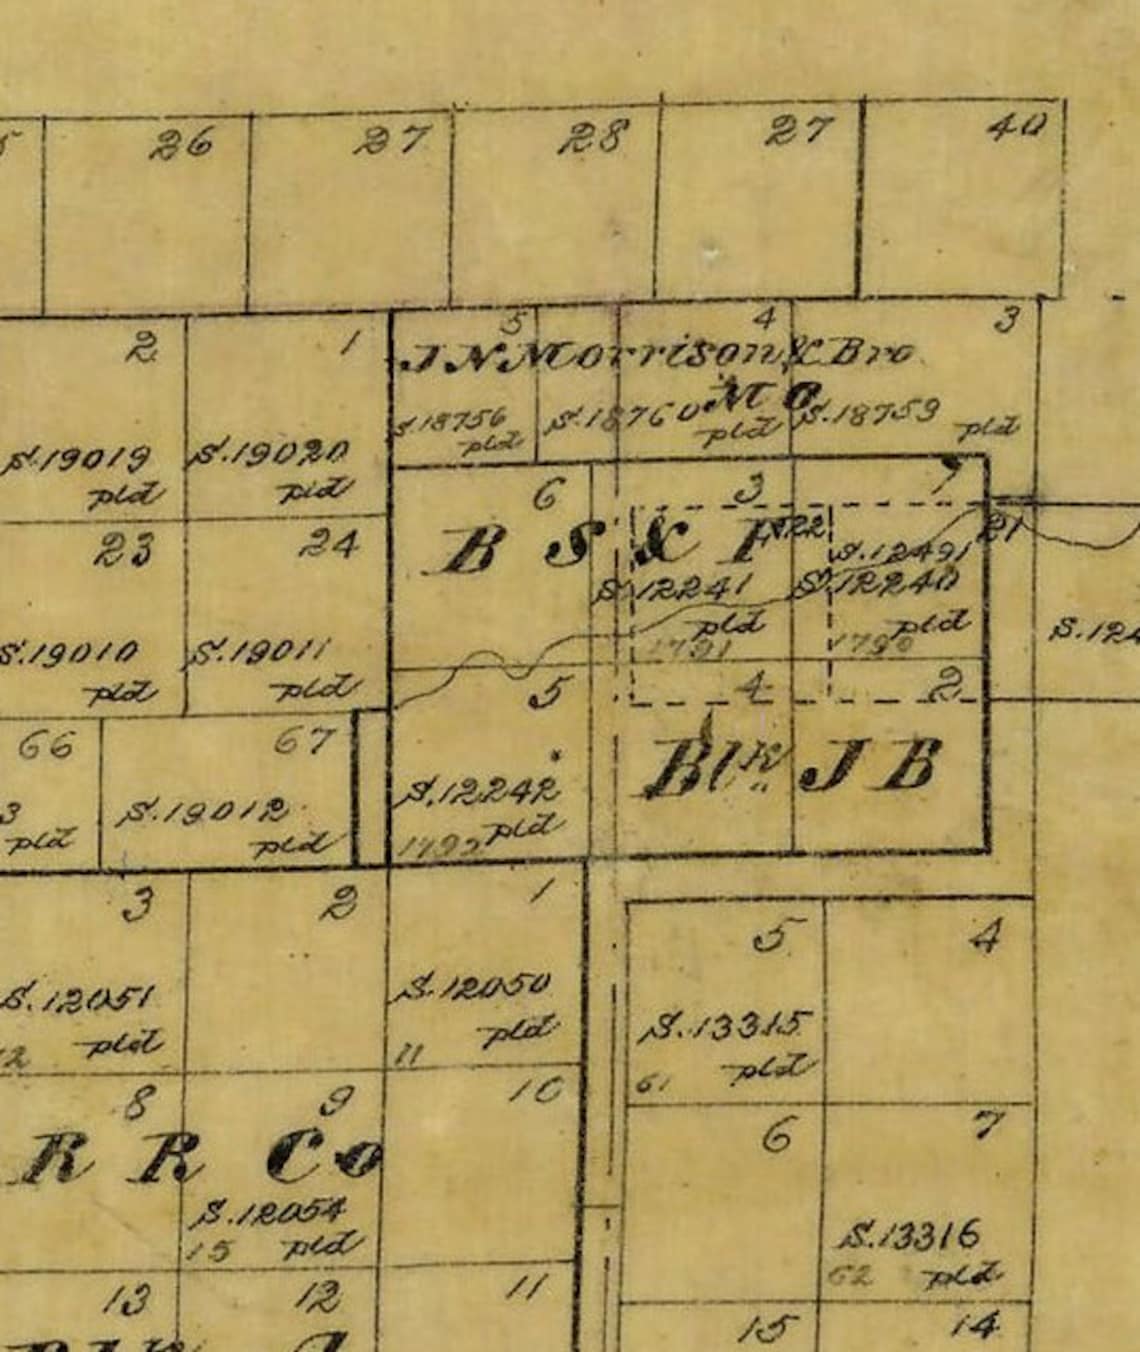 26 27 28 27 40
2 1 5 4 3
J N Morrison & Bro
M C
S.18756 S.18760 S.18759
pld pld pld
S.19019 S.19020
pld pld
6 3 1
23 24
B S & F
22 21
S.12491
S.12241 S.12240
pld pld
1791 1790
S.19010 S.19011 S.124
pld pld
5 4 2
66 67
Blk. J B
S.12242
pld
3 S.19012
pld pld
3 2 1
5 4
S.12051 S.12050
pld pld
12 11
S.13315
pld
61
8 9 10
6 7
R R Co
S.12054
15 pld
S.13316
62 pld
13 12 11
15 14